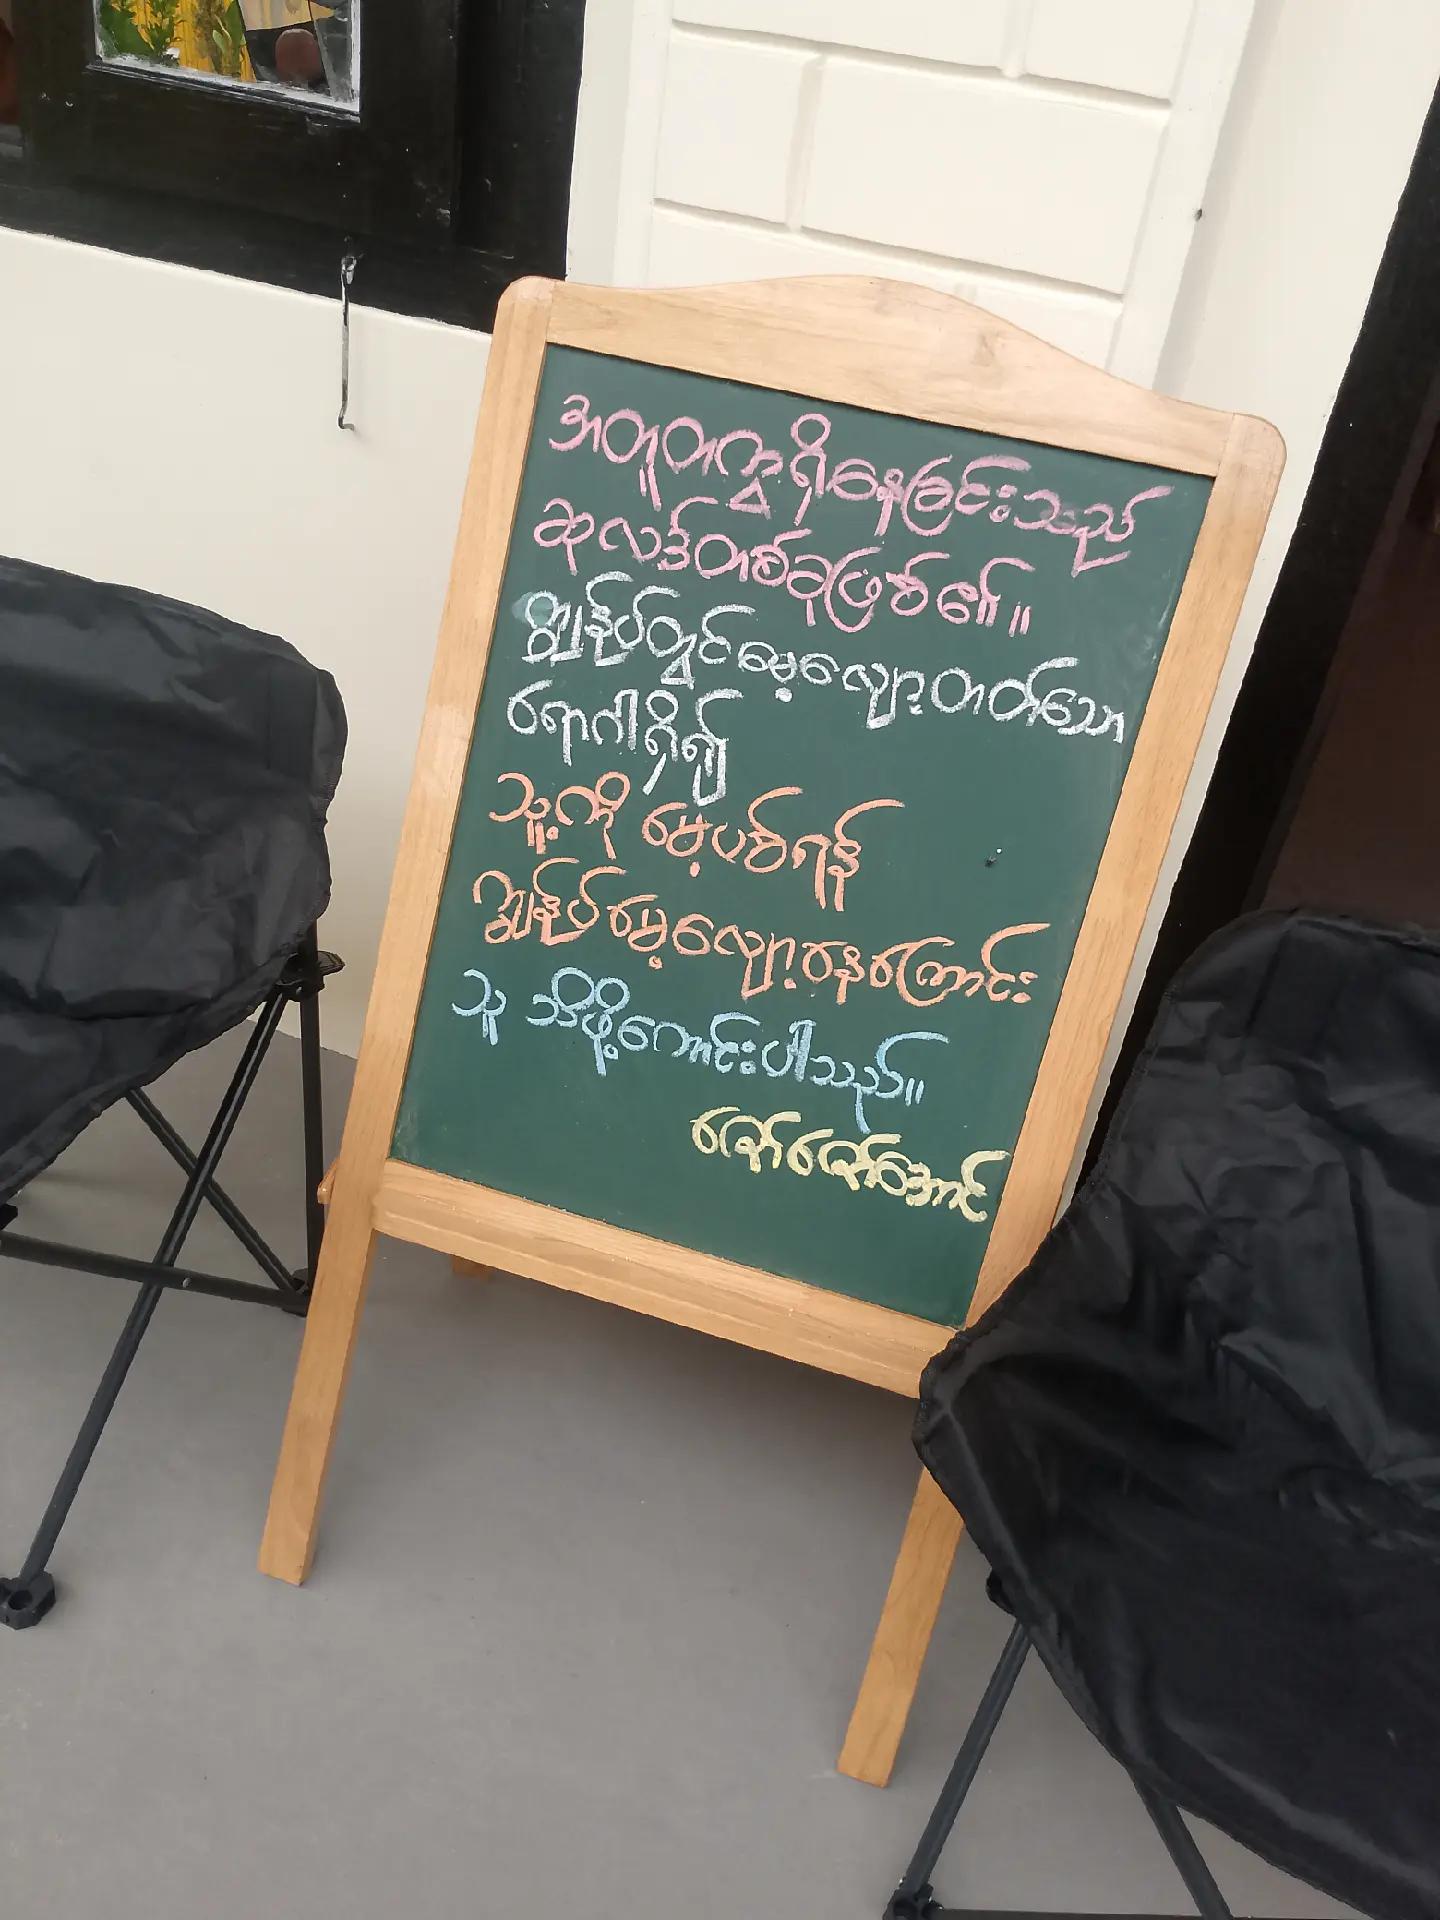 အတူတကွရှိနေခြင်းသည်
ဆုလဒ်တစ်ခုဖြစ်၏။
ကျွန်ုပ်တွင်မေ့လျော့တတ်သော
ရောဂါရှိ၍
သူ့ကို မေ့ပစ်ရန်
ကျွန်ုပ်မေ့လျော့နေကြောင်း
သူ သိဖို့ကောင်းပါသည်။
ဇော်ဇော်အောင်